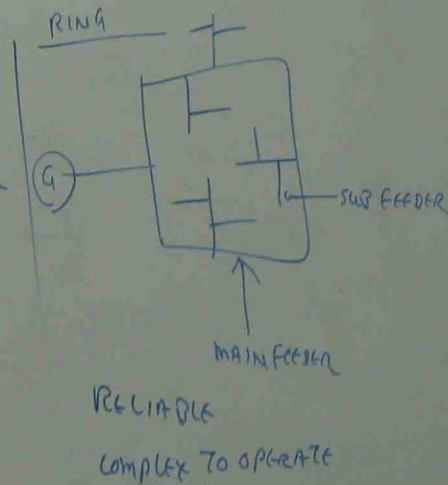 RING
G
SUB FEEDER
MAIN FEEDER
RELIABLE
COMPLEX TO OPERATE